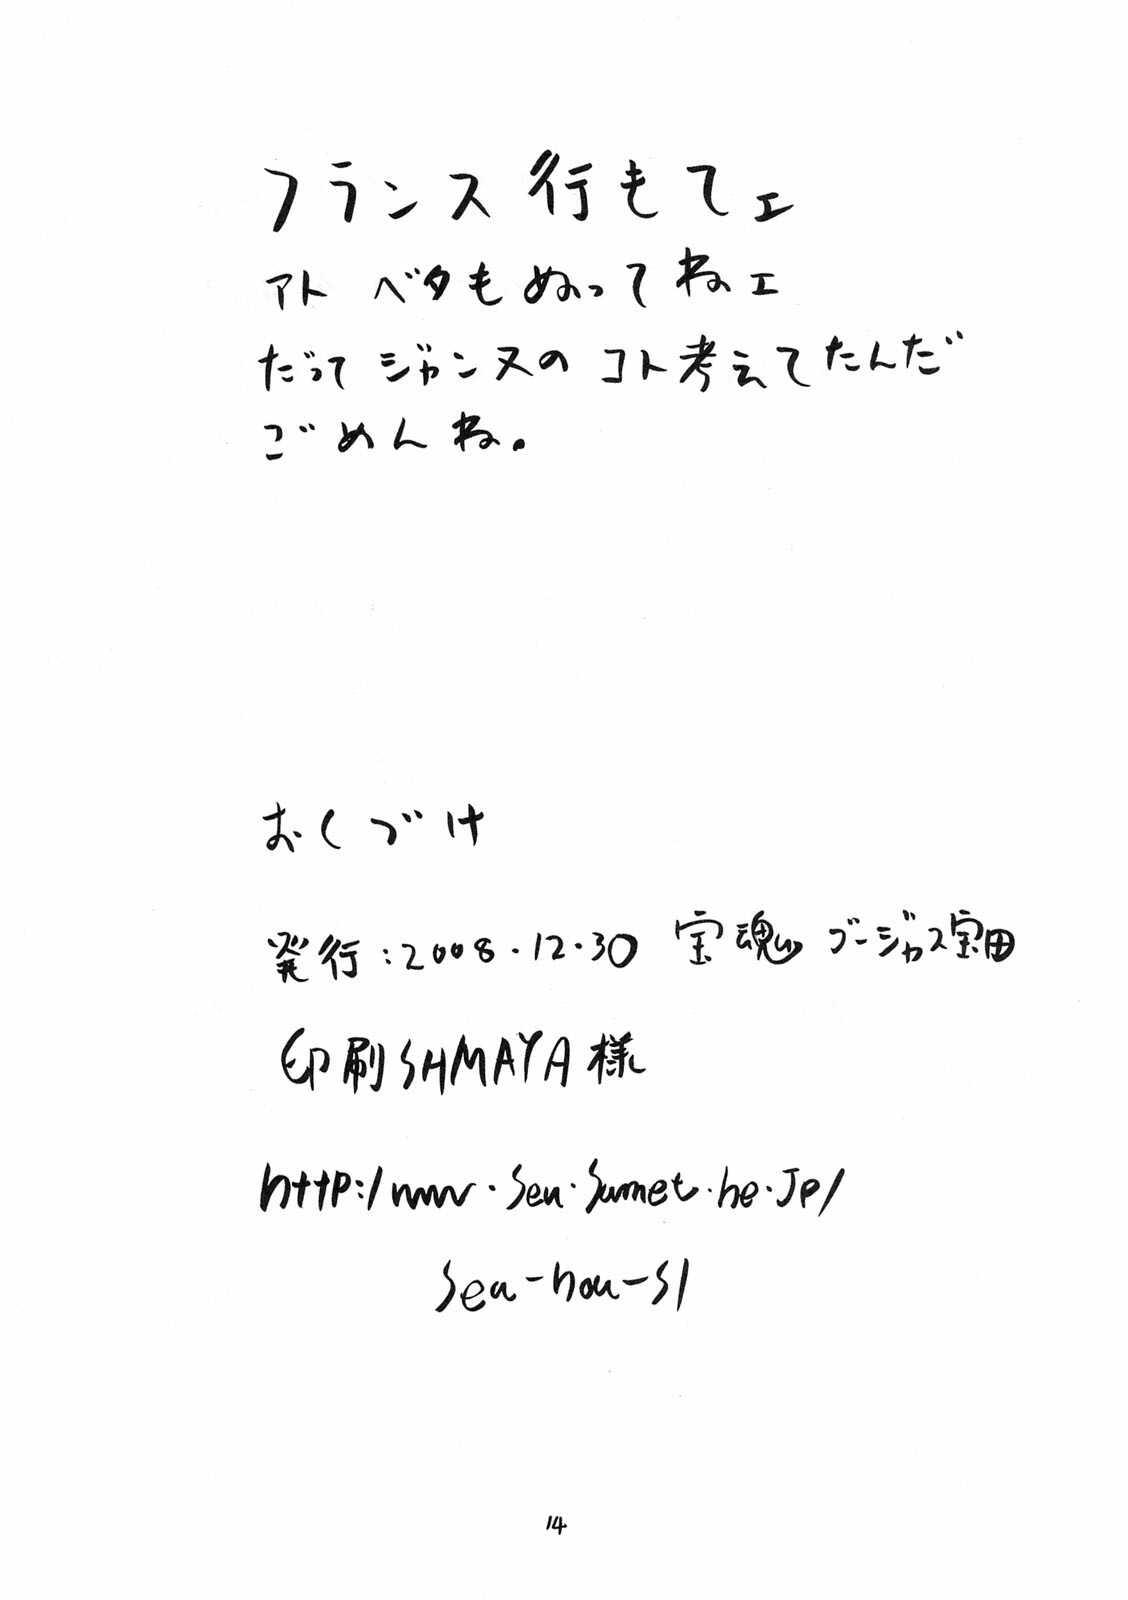 フランス行もてェ
アト ベタもぬってねェ
だって ジャンヌの コト考えてたんだ
ごめんね。
おくづけ
発行:2008.12.30 宝魂 ゴージャス宝田
印刷SHMAYA様
http:/www.sea.sumet.he.jp/
sea-hou-s/
14